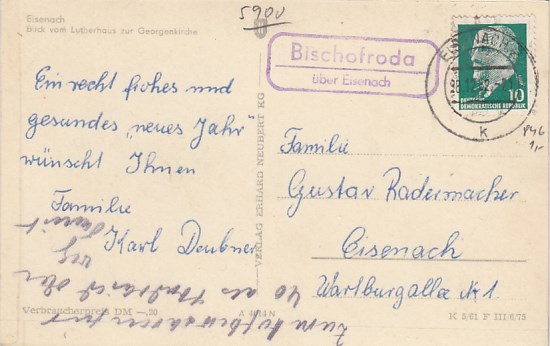 5900
Eisenach
Blick vom Lutherhaus zur Georgenkirche
Ein recht frohes und
gesundes „neues Jahr"
wünscht Ihnen
Familie
Karl Deubner
Verbraucherpreis DM —,20
A 4014 N
VERLAG ERHARD NEUBERT KG
Bischofroda
über Eisenach
EISENACH
k
10
DEUTSCHE
DEMOKRATISCHE REPUBLIK
1,-
Familie
Gustav Radermacher
Eisenach
Wartburgallee 1
K 5/61 F III 6/73
zum
40 als